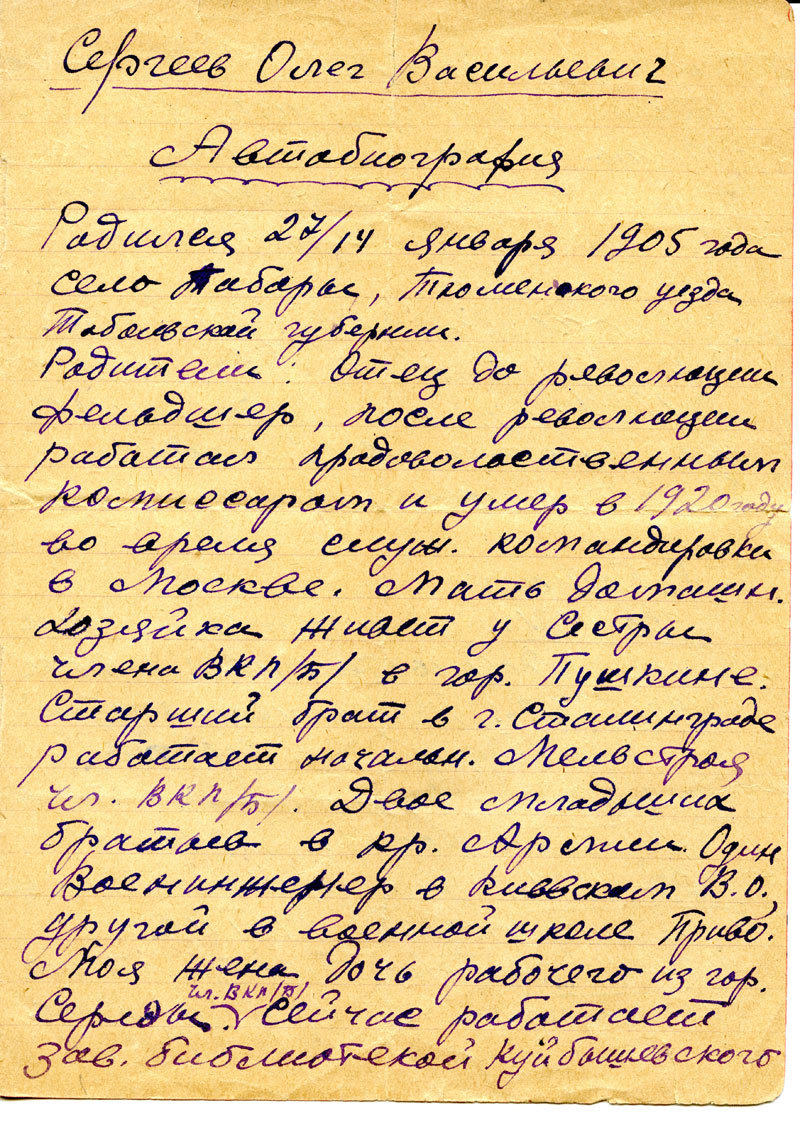 Сергеев Олег Васильевич
Автобиография
Родился 27/14 января 1905 года
село Табары, Тюменского уезда
Тобольской губернии.
Родители: Отец до революции
фельдшер, после революции
работал продовольственным
комиссаром и умер в 1920 году
во время служ. командировки
в Москве. Мать домашн.
хозяйка живет у сестры
члена ВКП/б/ в гор. Пушкине.
Старший брат в г. Сталинграде
работает начальн. Мельстроя
чл. ВКП/б/. Двое младших
братьев в кр. Армии. Один
Военинженер в Киевском В.О.,
другой в военной школе Приво.
Моя жена дочь рабочего из гор.
чл. ВКП/б/
Середы. Сейчас работает
зав. библиотекой Куйбышевского